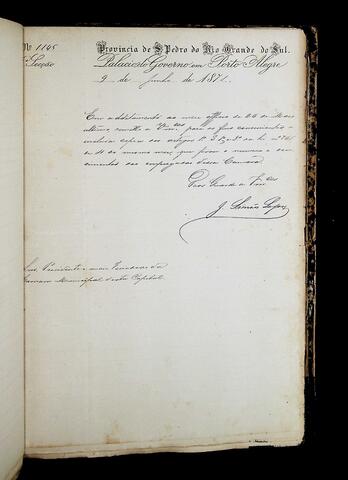 Nº 1195 Provincia de S. Pedro do Rio Grande do Sul.
Secção Palacio do Governo em Porto Alegre
9 de Junho de 1871.
Em additamento ao meu officio de 26 de Maio
ultimo remetto a Vmces. para os fins convenientes
copia dos artigos 2º e 3º da Lei nº
de 11 do mesmo mez, que fixa o numero e
vencimentos dos empregados dessa Camara.
Deos Guarde a Vmces
J. Simão Lopes
Snrs. Presidente e mais Vereadores da
Camara Municipal desta Capital.